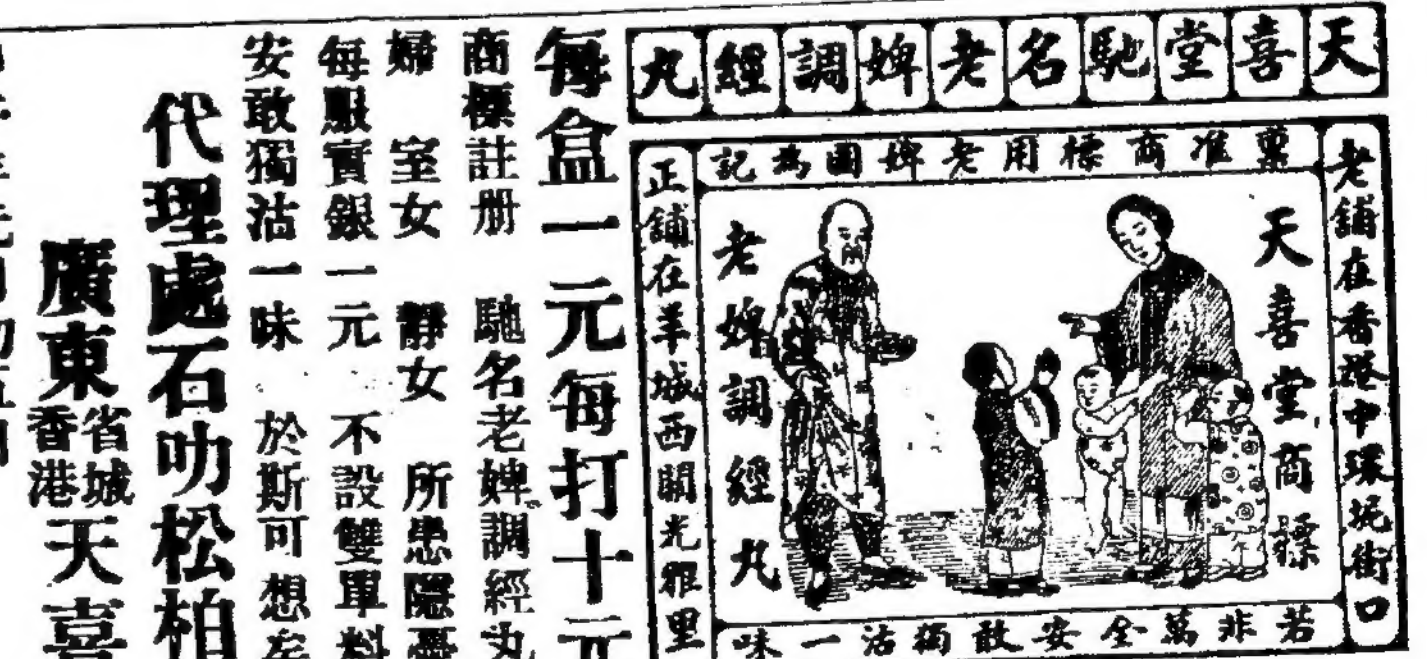 天喜堂馳名老婢調經丸
老舖在香港中環坑街口
稟准商標用老婢圖為記
天喜堂商標
老婢調經丸
正舖在羊城西關光雅里
若非萬全安敢獨沽一味
每盒一元每打十元
商標註册 馳名老婢調經丸
婦 室女 靜女 所患隱憂
每服實銀一元 不設雙單料
安敢獨沽一味 於斯可想矣
代理處石叻松柏
廣東省城香港天喜